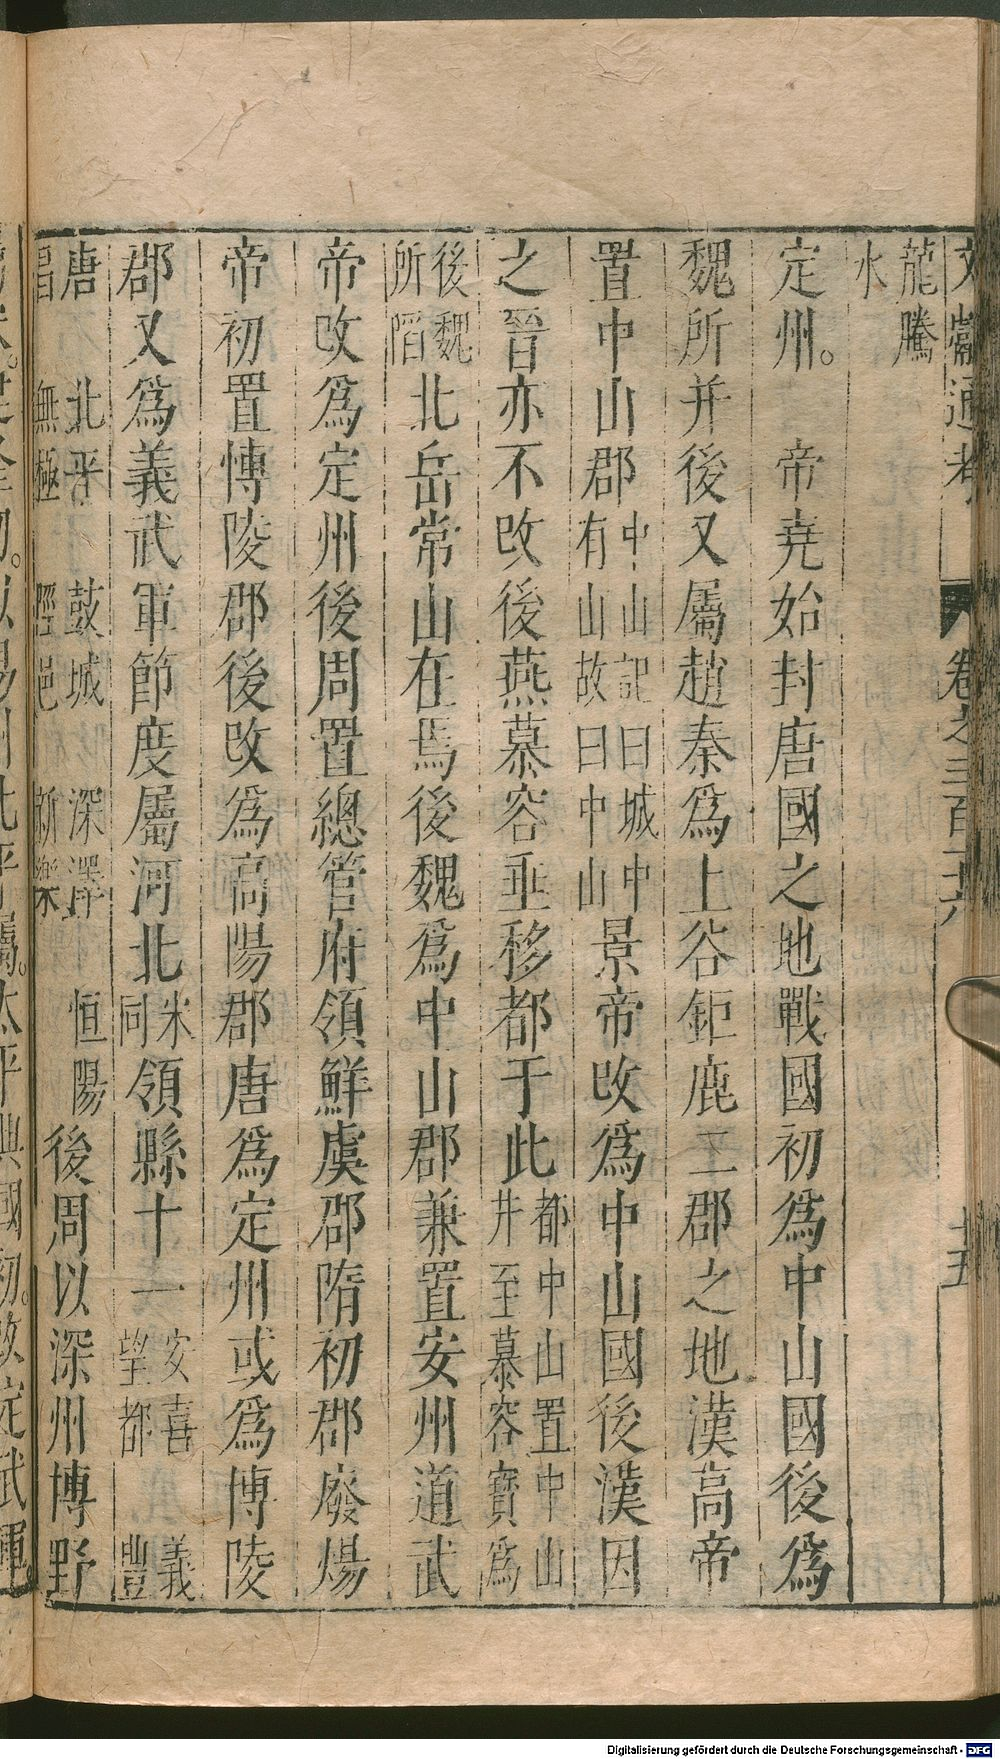 文獻通考 卷之三百十六 十五
龍騰
水
定州。 帝堯始封唐國之地戰國初為中山國後為
魏所并後又屬趙秦為上谷鉅鹿二郡之地漢高帝
置中山郡中山記曰城中有山故曰中山景帝改為中山國後漢因
之晉亦不改後燕慕容垂移都于此都中山置中山井至慕容寶為
後魏所䧟北岳常山在焉後魏為中山郡兼置安州道武
帝改為定州後周置總管府領鮮虞郡隋初郡廢煬
帝初置慱陵郡後改為高陽郡唐為定州或為博陵
郡又為義武軍節度屬河北宋同領縣十一安喜 義豐 望都
唐昌 北平 無極 鼓城 陘邑 深澤 新樂 恒陽後周以深州博野